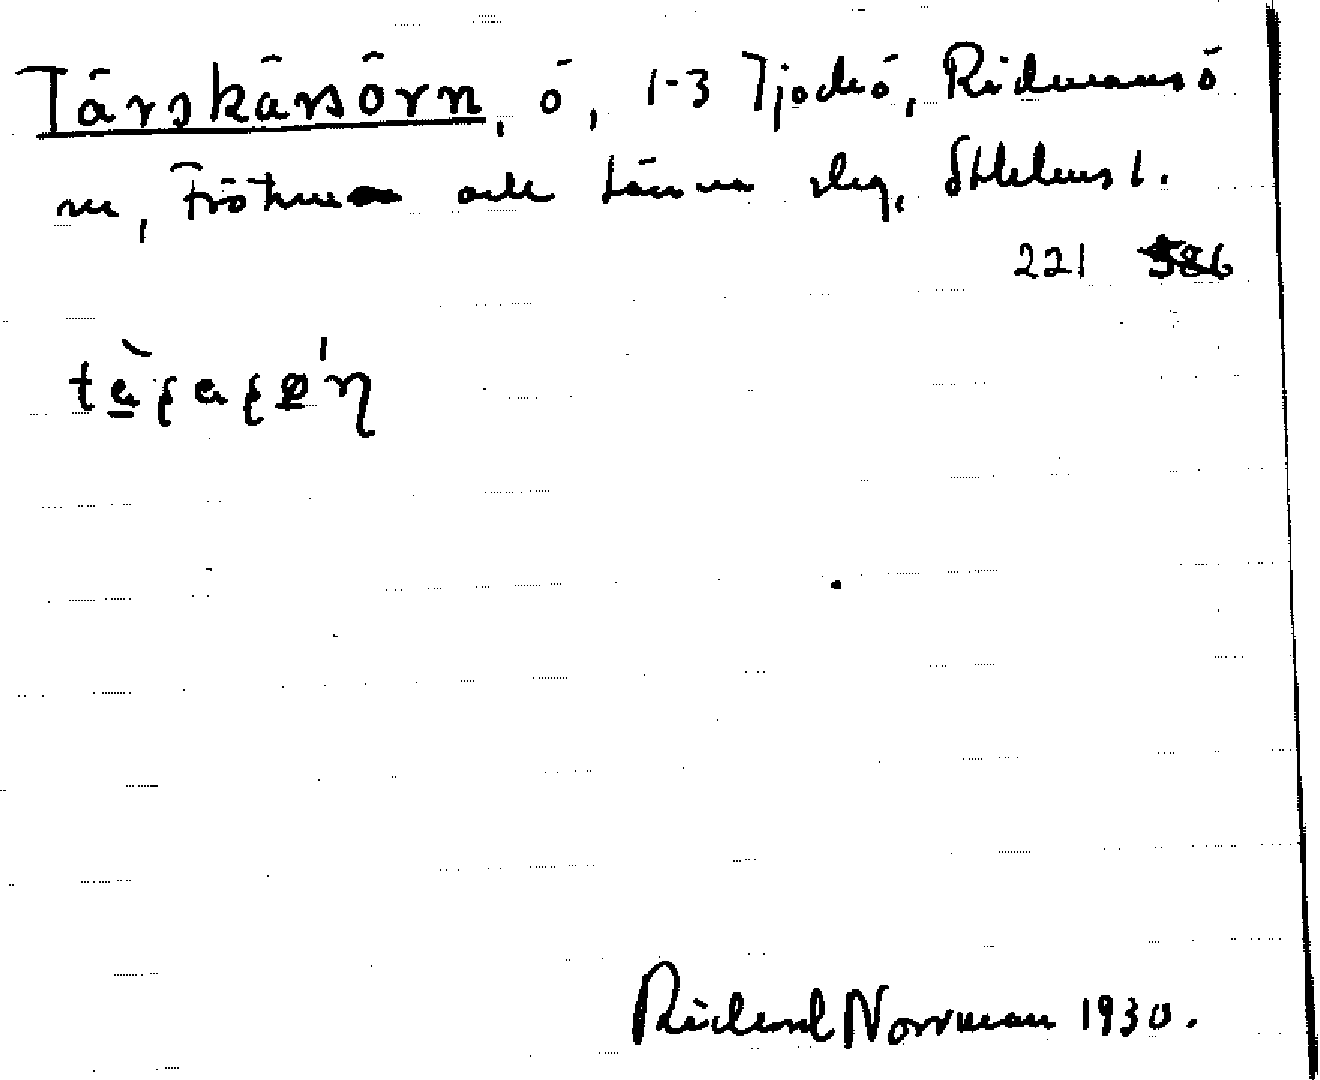 Tärskärsörn, ö, 1-3 Tjockö, Rådmansö
sn, Frötuna och Länna slg, Sthlms l.
221
Rickard Norrman 1930.